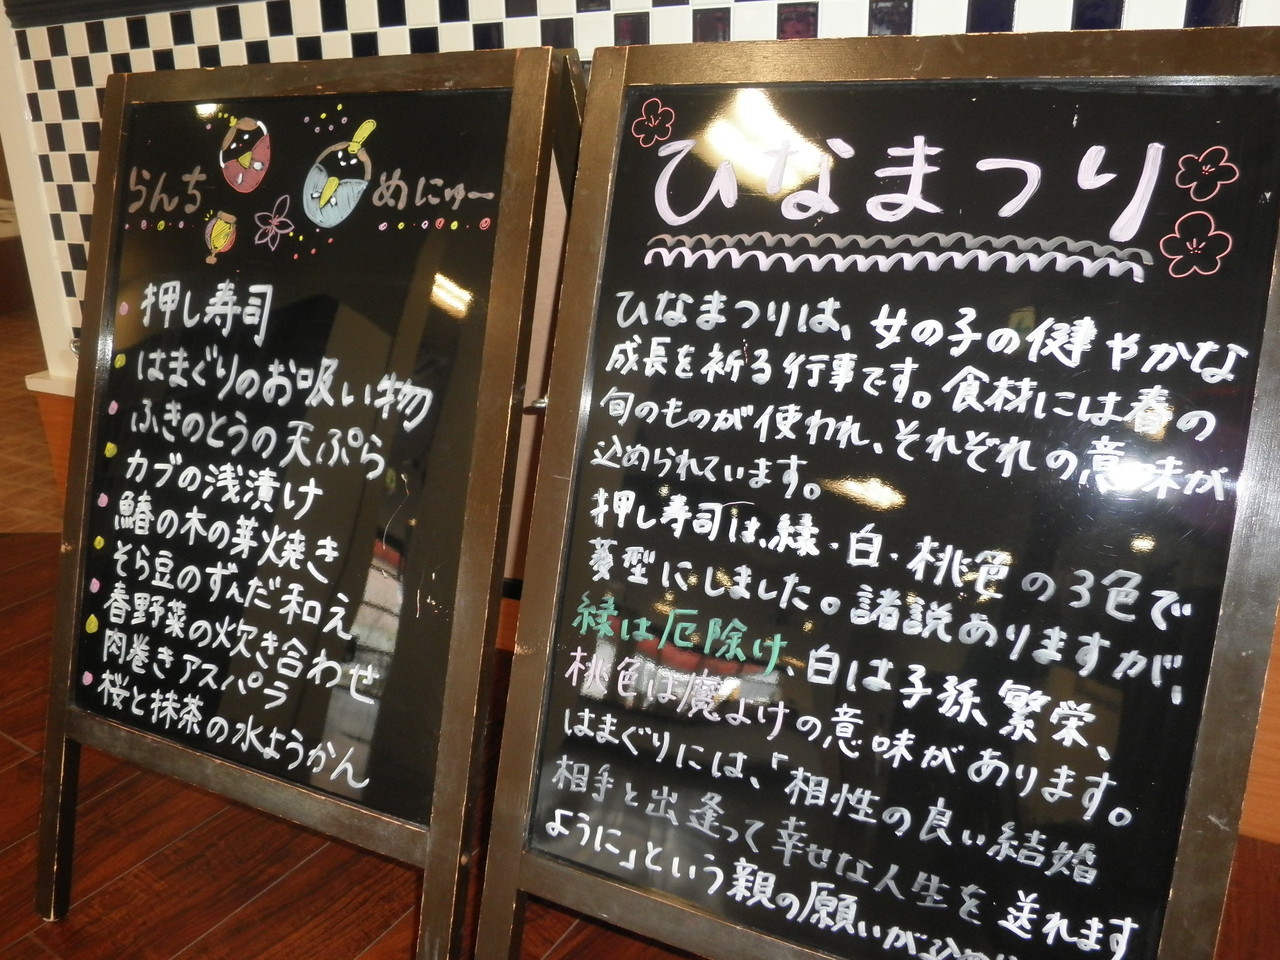 らんち めにゅー
・押し寿司
・はまぐりのお吸い物
・ふきのとうの天ぷら
・カブの浅漬け
・鰆の木の芽焼き
・そら豆のずんだ和え
・春野菜の炊き合わせ
・肉巻きアスパラ
・桜と抹茶の水ようかん
ひなまつり
ひなまつりは、女の子の健やかな
成長を祈る行事です。食材には春の
旬のものが使われ、それぞれの意味が
込められています。
押し寿司は、緑・白・桃色の3色で
菱型にしました。諸説ありますが、
緑は厄除け、白は子孫繁栄、
桃色は魔よけの意味があります。
はまぐりには、「相性の良い結婚
相手と出逢って幸せな人生を送れます
ように」という親の願いが込め